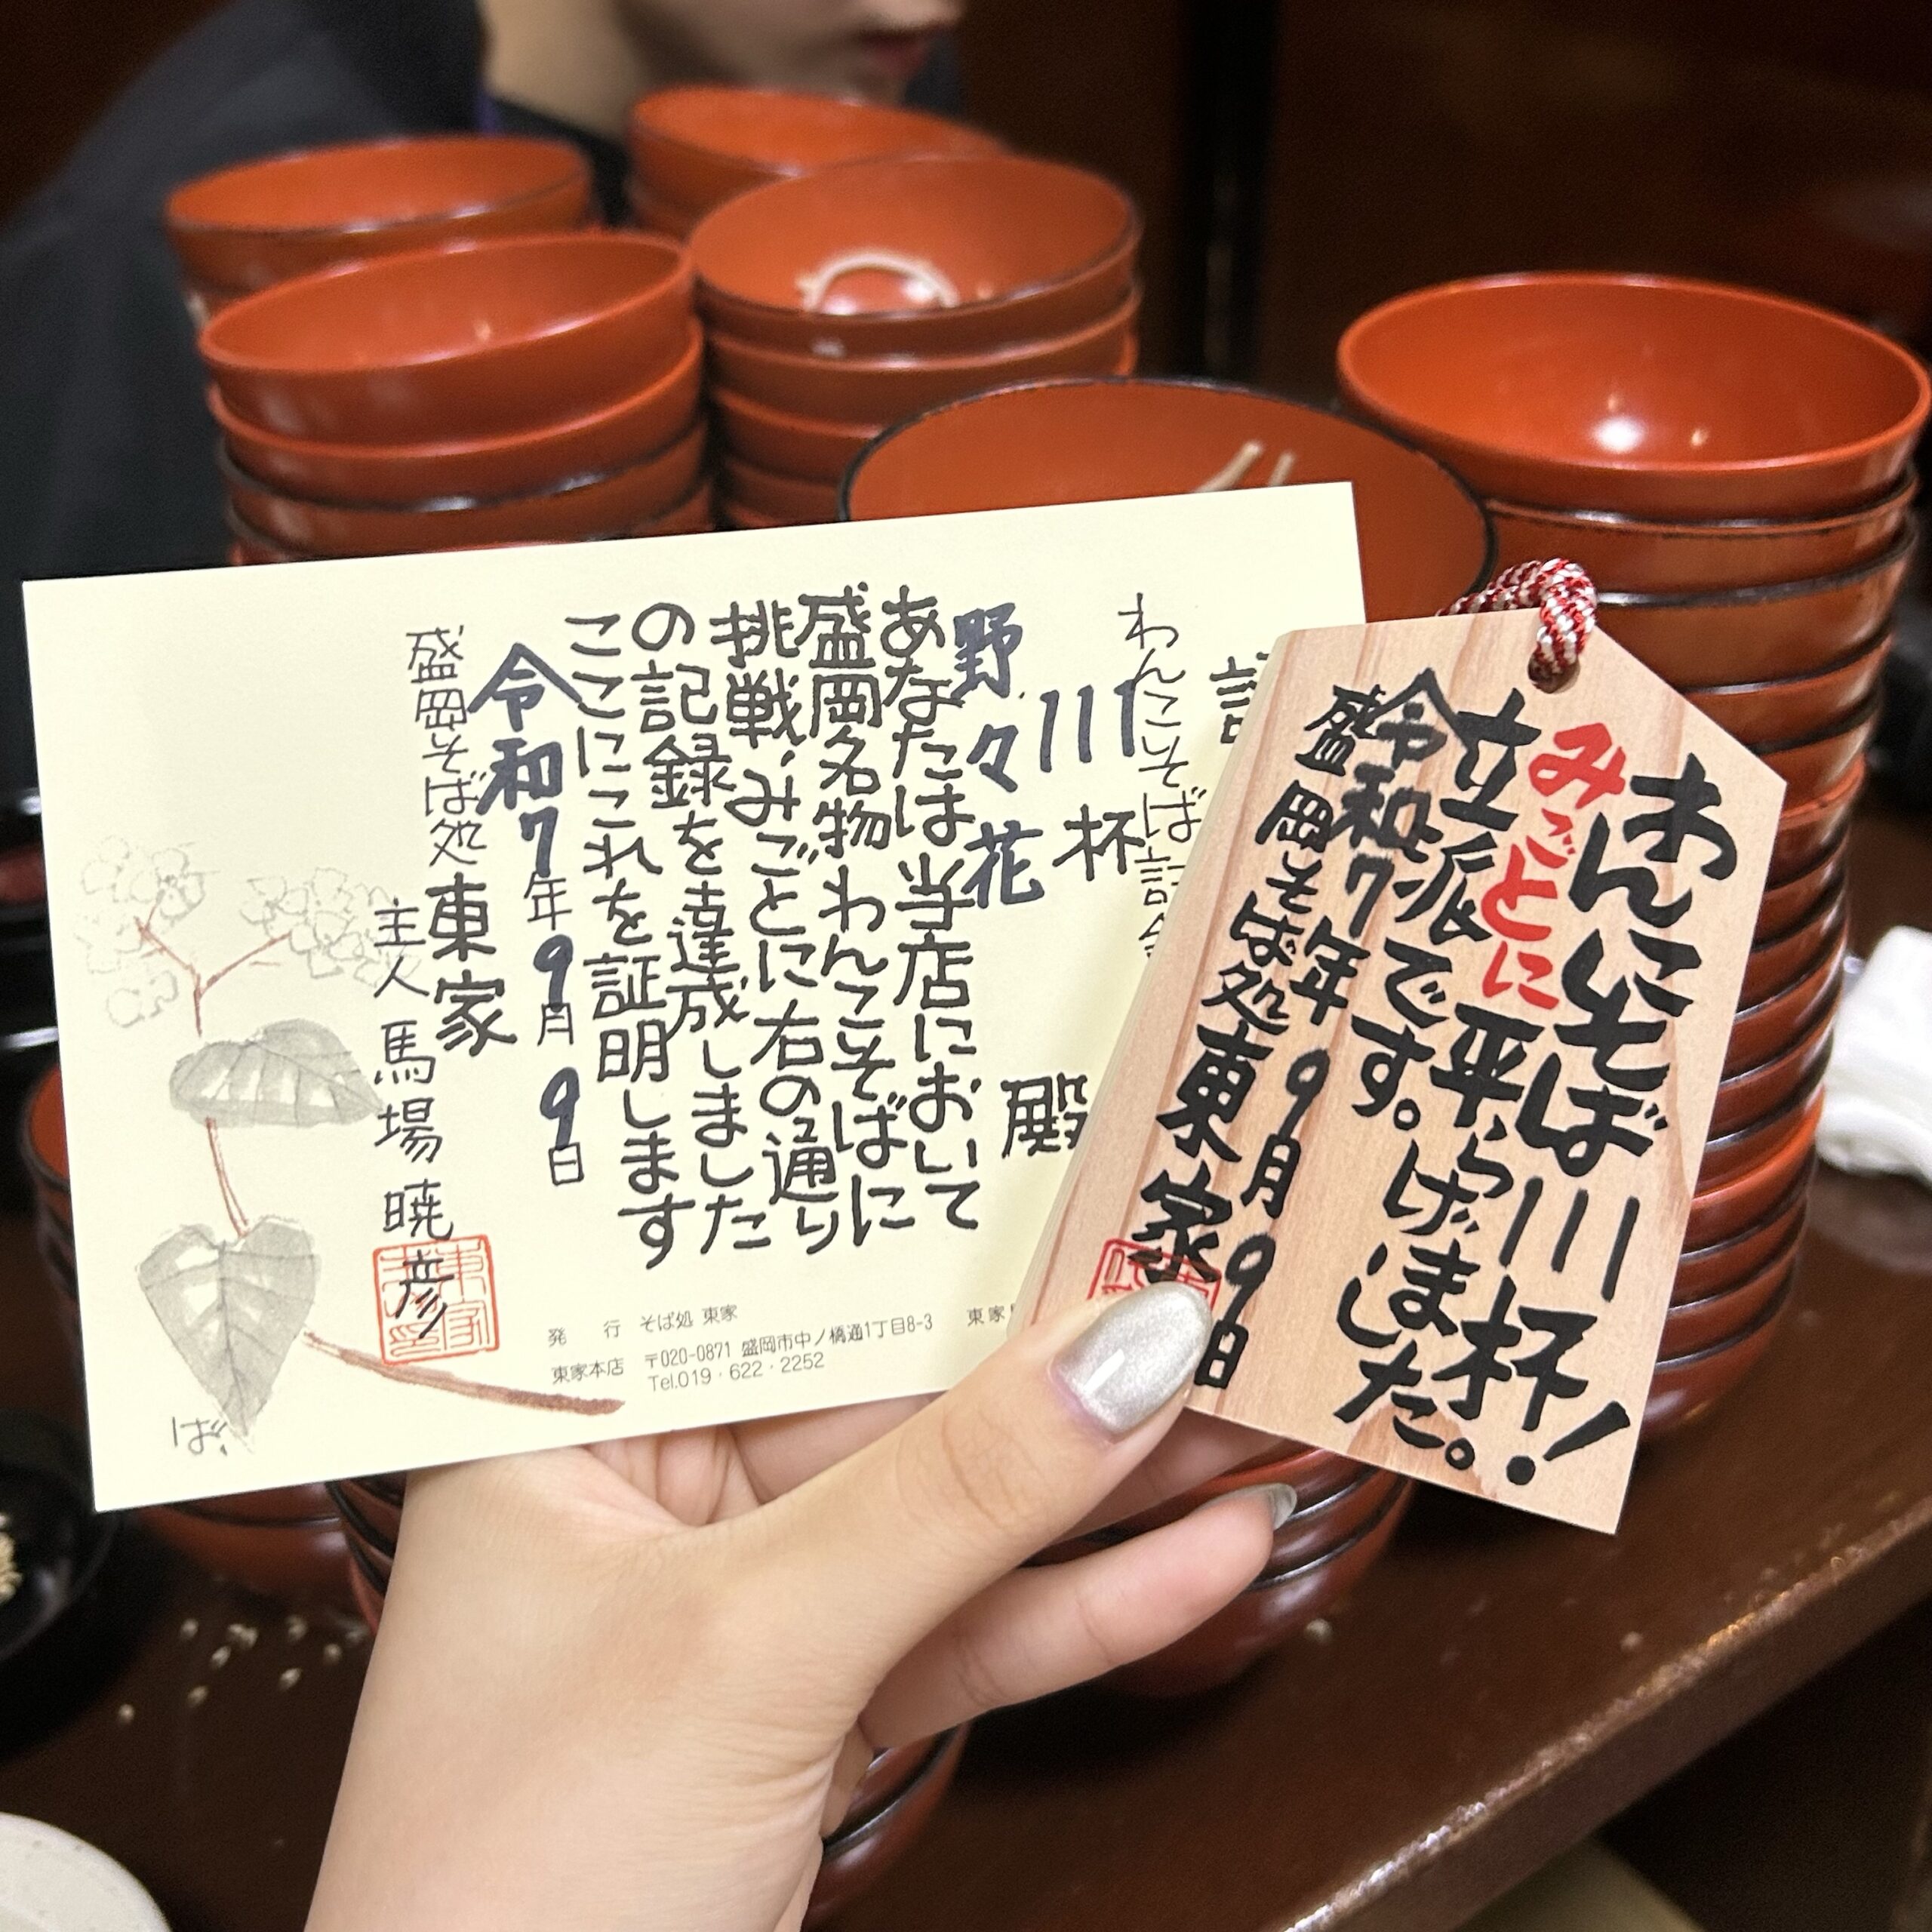 わんこそば
111杯
野々花 殿
あなたは当店において
盛岡名物わんこそばに
挑戦、みごとに右の通り
の記録を達成しました
ここにこれを証明します
令和7年9月9日
盛岡そば処 東家
主人 馬場暁彦
発行 そば処 東家
東家本店 〒020-0871 盛岡市中ノ橋通1丁目8-3
Tel.019・622・2252
東家
ば
わんこそば111杯!
みごとに平らげました。
立派です。
令和7年9月9日
盛岡そば処東家